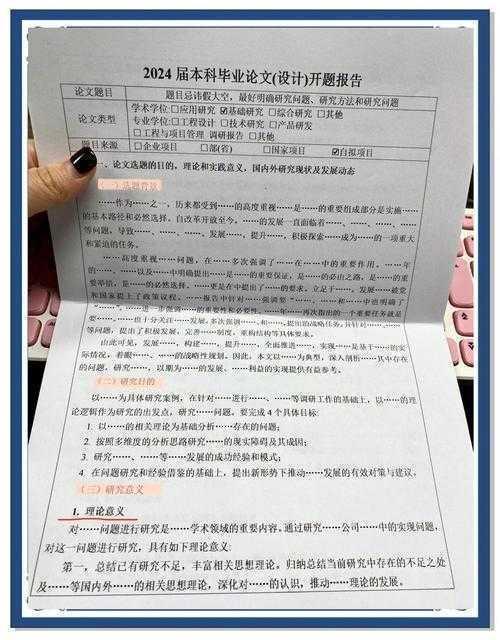 2024 届本科毕业论文(设计)开题报告
论文题目 题目忌讳假大空，最好明确研究问题、研究方法和研究问题
论文类型 学术学位:☐应用研究 ☑基础研究 ☐综合研究 ☐其他
专业学位:☐工程设计 ☐技术研究 ☐产品研发
☐工程与项目管理 调研报告 ☐其他
题目来源 ☐企业项目 ☐部(省) ☐国家项目 ☑自拟项目
一、论文选题的目的，理论和实践意义，国内外研究现状及发展动态
（一）选题背景
……作为……之一，历来都受到……的高度重视……是……的重要组成部分是实施……
的基本路径和必然选择。自改革开放至今，……的发展一直面临着……、……、……、……
等问题，导致……、……、……发展，……提升……，积极探索……成为……的一项重大
和紧迫的任务。
……高度重视……问题，在……多次强调了……在……中的重要作用。……年
的……、……以及……中明确提出……是……的重要保证，是……的必由之路，是……的重
要举措，是……的必然选择。……更是在中提出了……的要求。立足于……，发展……被党
和国家提上了政策议程。……报告中针对……强调要"……、……和……中也明确了
"……，……进一步强调……的重要性和必要性。……年……再次指出的一个重要任务就是
要……，……也十分关注……发展，多次强调……和……，提出的战略任务，并针对……
等问题，提出了积极发展，完善……制度，重构结构等具体要求。
由此可见，发展……，构建……，提升……，全面推进……，实现……是基于……的实
际情况，着眼……、……的战略性规划。因此，本文以……为典型，深入剖析……其中存在
的问题，研究……，以期为……的发展、……利益的实现提供有益参考。
（二）研究目的
以……为具体研究案例，在针对……进行……、……等调研工作的基础上，以……的理
论逻辑作为研究的出发点，研究……问题，要完成 4 个具体目标:
1. 以……的相关理论为基础分析……存在的问题;
2. 按照多维度的分析思路研究……的现实障碍及其成因;
3. 研究……、……等……发展的成功经验和模式;
4. 在问题研究和经验借鉴的基础上，提出新形势下推动……发展的有效对策与建议。
（三）研究意义
1. 理论意义
对……问题进行研究是……学术领域的重要内容。通过研究……公司……中的实现问题，
对这一问题进行研究，具有如下理论意义:
第一，总结已有研究不足，丰富相关思想理论。归纳总结当前研究中存在的不足之处
及……等国内外……的相关思想理论，深化对……的认识，推动……理论的发展。